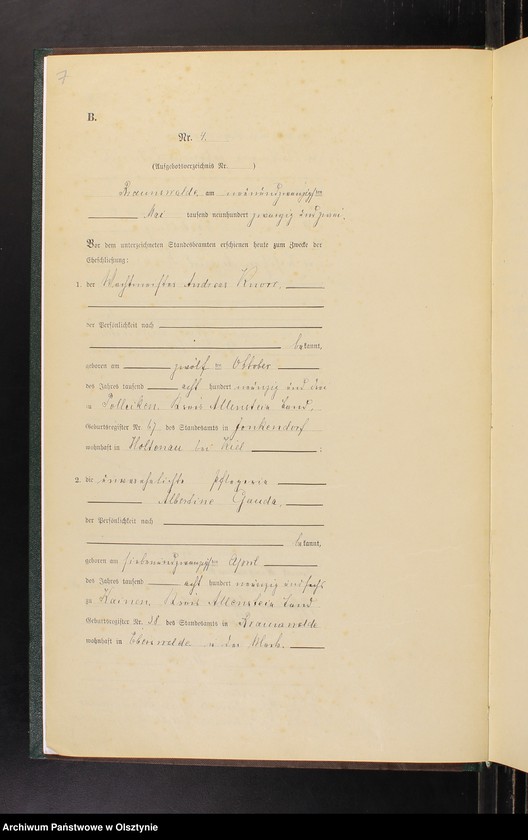 7
B.
Nr. 4.
(Aufgebotsverzeichnis Nr. )
Braunswalde am neunundzwanzigsten
Mai tausend neunhundert zwanzig und zwei.
Vor dem unterzeichneten Standesbeamten erschienen heute zum Zwecke der
Eheschließung:
1. der Wachtmeister Andreas Knorr,
der Persönlichkeit nach
bekannt,
geboren am zwölften Oktober
des Jahres tausend acht hundert neunzig und drei
zu Polleiken, Kreis Allenstein Land,
Geburtsregister Nr. 67 des Standesamts in Jonkendorf
wohnhaft in Holtenau bei Kiel ;
2. die unverehelichte Pflegerin
Albertine Gauda,
der Persönlichkeit nach
bekannt,
geboren am siebenundzwanzigsten April
des Jahres tausend acht hundert neunzig und sechs
zu Kainen, Kreis Allenstein Land
Geburtsregister Nr. 38 des Standesamts in Braunswalde
wohnhaft in Eberswalde in der Mark.
Archiwum Państwowe w Olsztynie